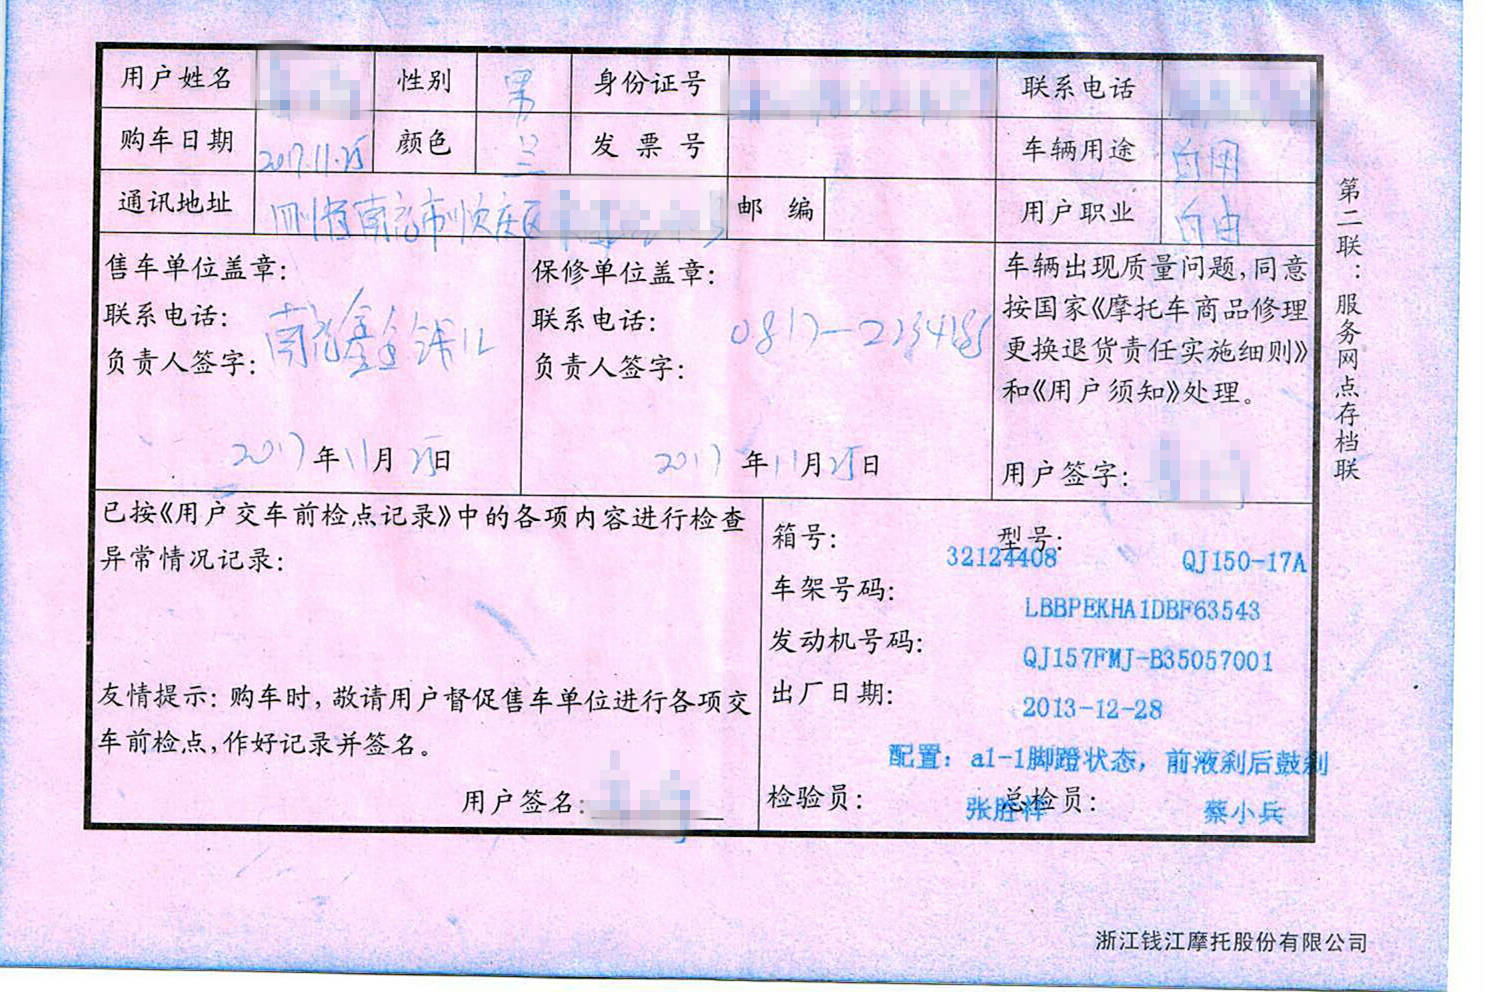 用户姓名 性别 男 身份证号 联系电话
购车日期 2017.11.25 颜色 兰 发票号 车辆用途 自用
通讯地址 四川省南充市顺庆区 邮编 用户职业 自由
售车单位盖章:
联系电话:
负责人签字:
南充鑫
2017年11月25日
保修单位盖章:
联系电话: 0817-2234185
负责人签字:
2017年11月25日
车辆出现质量问题,同意
按国家《摩托车商品修理
更换退货责任实施细则》
和《用户须知》处理。
用户签字:
已按《用户交车前检点记录》中的各项内容进行检查
异常情况记录:
友情提示: 购车时,敬请用户督促售车单位进行各项交
车前检点,作好记录并签名。
用户签名:
箱号: 32124408 型号: QJ150-17A
车架号码: LBBPEKHA1DBF63543
发动机号码: QJ157FMJ-B35057001
出厂日期: 2013-12-28
配置: a1-1脚蹬状态, 前液刹后鼓刹
检验员: 张胜祥 总检员: 蔡小兵
第二联:服务网点存档联
浙江钱江摩托股份有限公司